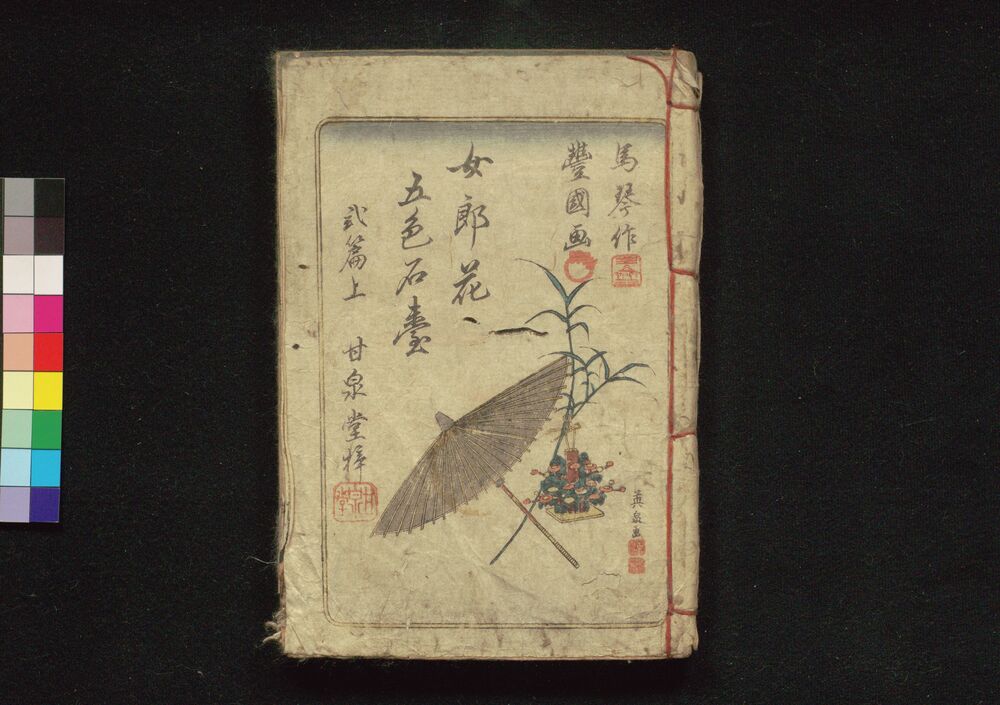 馬琴作
豐國画
女郎花
五色石臺
弐篇上
甘泉堂梓
英泉画